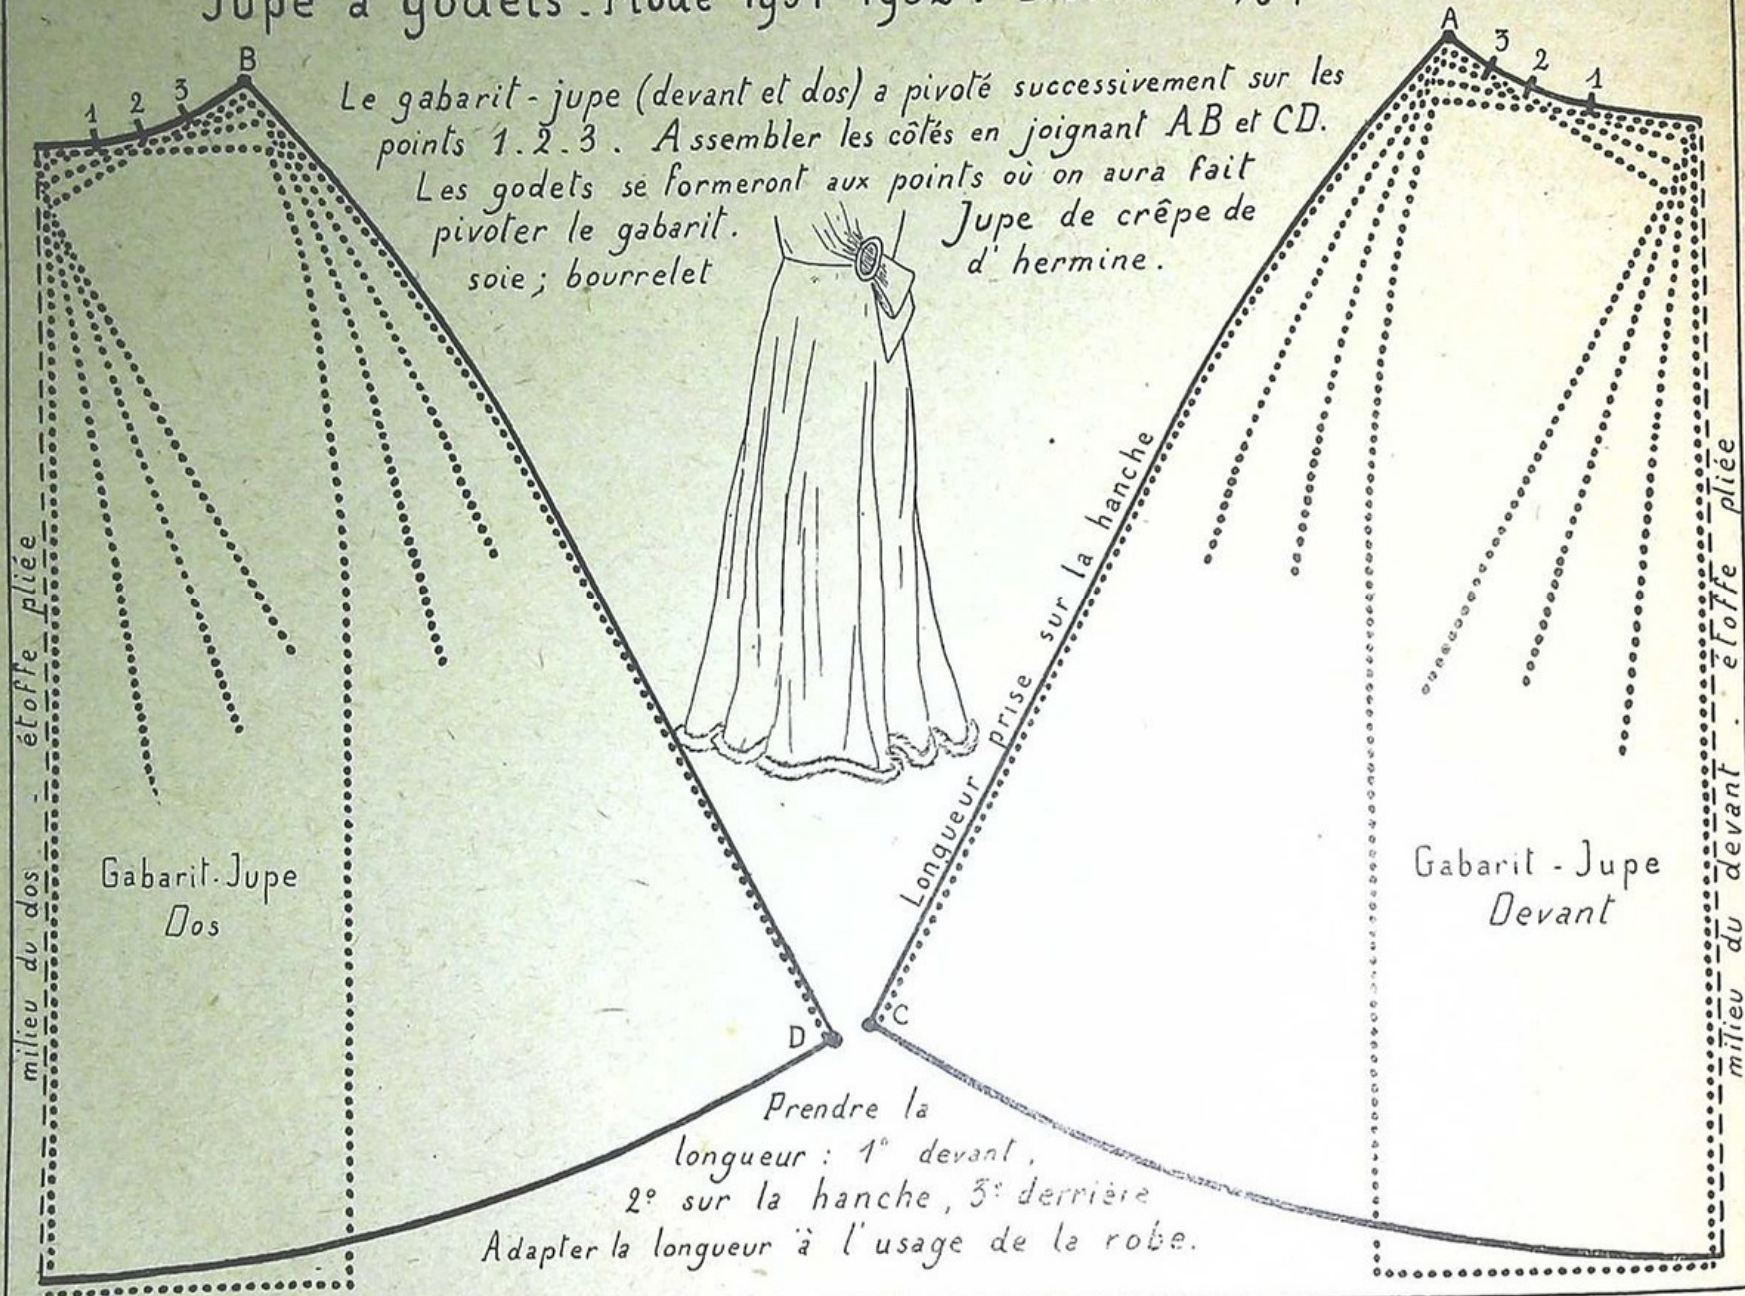 Jupe à godets.
B
1 2 3
A
3 2 1
Le gabarit-jupe (devant et dos) a pivoté successivement sur les
points 1.2.3. Assembler les côtés en joignant AB et CD.
Les godets se formeront aux points où on aura fait
pivoter le gabarit.
Jupe de crêpe de
soie ; bourrelet
d'hermine.
milieu du dos - étoffe pliée
Gabarit-Jupe
Dos
Longueur prise sur la hanche
Gabarit - Jupe
Devant
milieu du devant . étoffe pliée
D
C
Prendre la
longueur : 1° devant,
2° sur la hanche, 3° derrière
Adapter la longueur à l'usage de la robe.